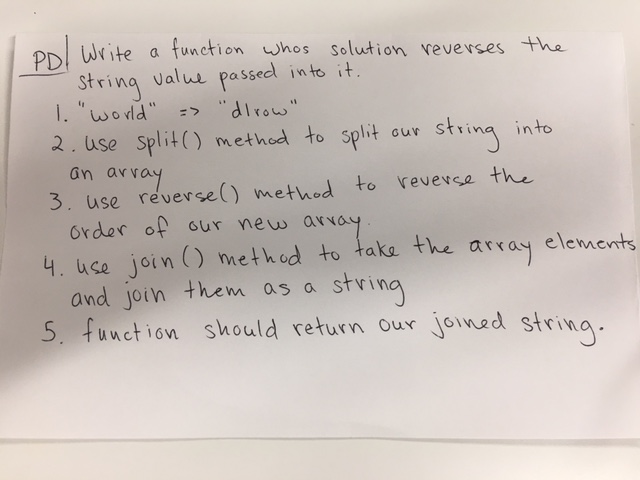 PD| Write a function whos solution reverses the
string value passed into it.
1. "world" => "dlrow"
2. use split() method to split our string into
an array
3. use reverse() method to reverse the
order of our new array.
4. use join() method to take the array elements
and join them as a string
5. function should return our joined string.